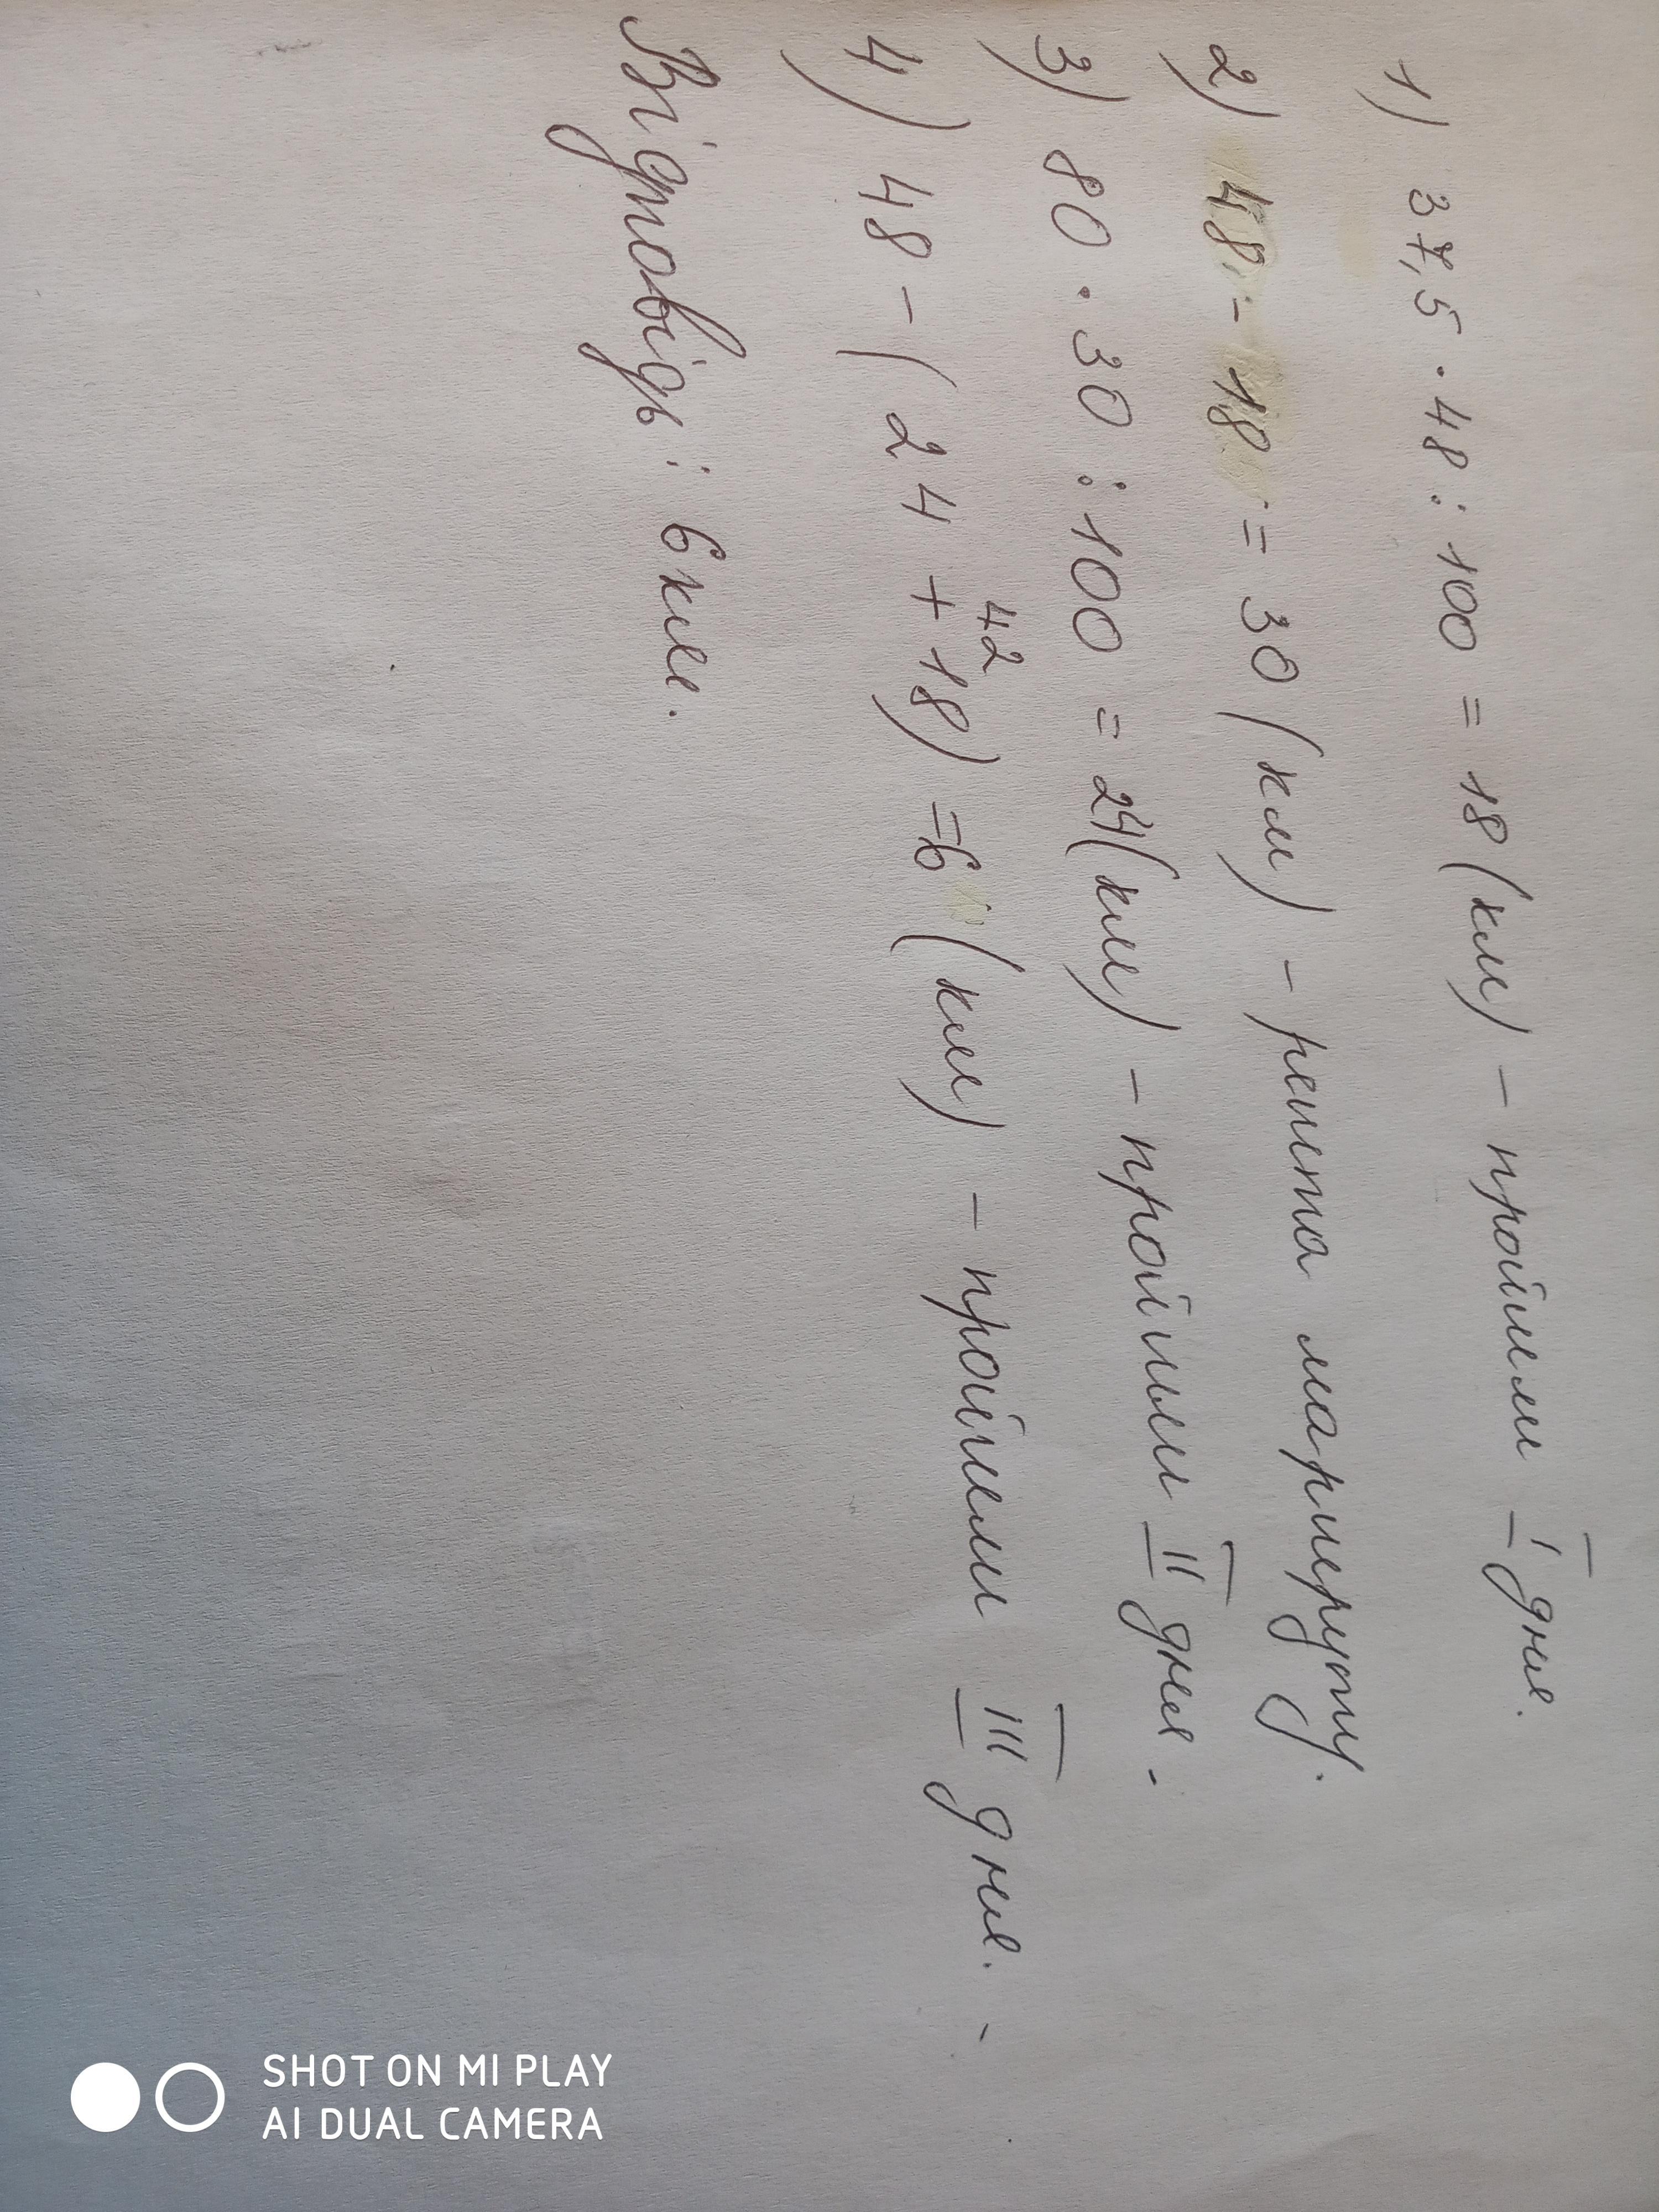 1) 37,5 · 48 : 100 = 18 (км) – пройшли I дня.
2) 48 - 18 = 30 (км) – решта маршруту.
3) 80 · 30 : 100 = 24 (км) – пройшли II дня.
42
4) 48 – (24 + 18) = 6 (км) – пройшли III дня.
Відповідь: 6 км.
SHOT ON MI PLAY
AI DUAL CAMERA